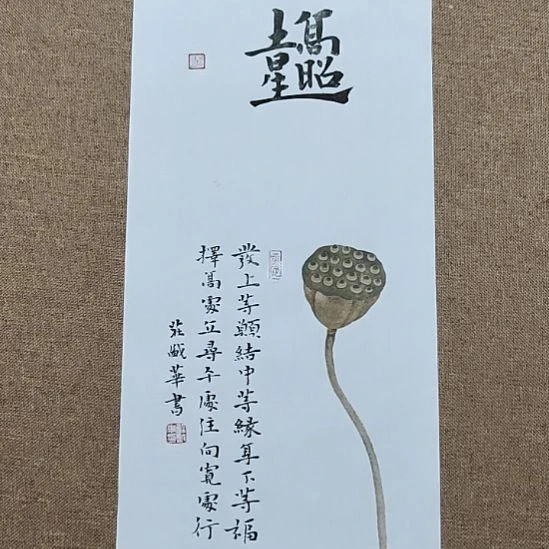 吉星高照
發上等願結中等緣享下等福
擇高處立尋平處住向寬處行
莊華書